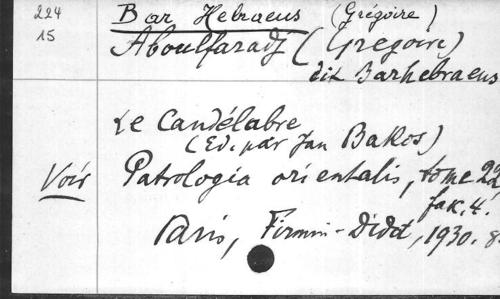 224
15
Bar Hebraeus (Grégoire)
Aboulfaradj (Gregoire)
dit Barhebraeus
Le Candélabre
(Ed. par Jan Bakos)
Voir Patrologia orientalis, tome 22,
fax. 4.
Paris, Firmin-Didot, 1930. 8